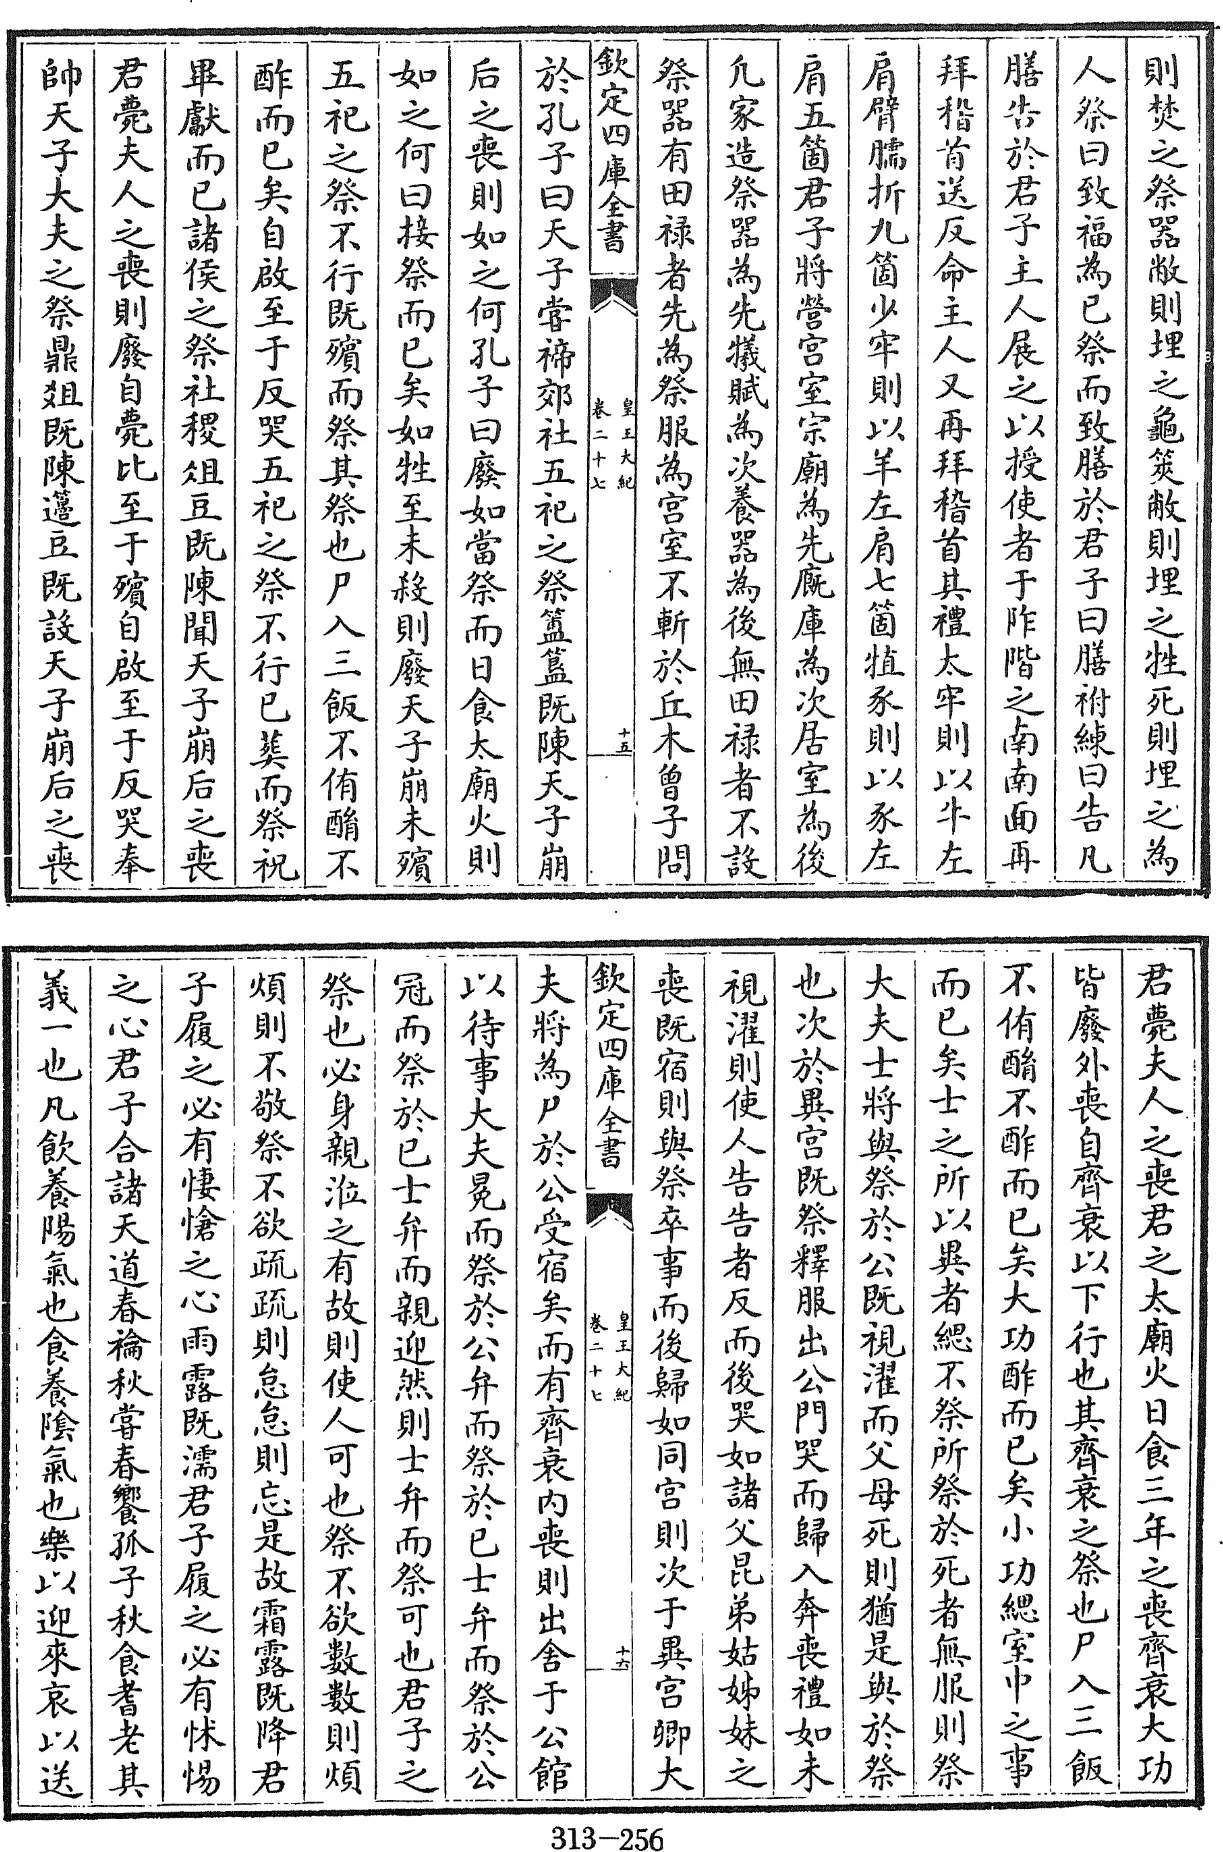 則焚之祭器敝則埋之龜筴敝則埋之牲死則埋之為
人祭曰致福為已祭而致膳於君子曰膳祔練曰告凡
膳告於君子主人展之以授使者于阼階之南南面再
拜稽首送反命主人又再拜稽首其禮太牢則以牛左
肩臂臑折九箇少牢則以羊左肩七箇犆豕則以豕左
肩五箇君子將營宮室宗廟為先廐庫為次居室為後
凡家造祭器為先犧賦為次養器為後無田祿者不設
祭器有田禄者先為祭服為宮室不斬於丘木曾子問
欽定四庫全書
皇王大紀
卷二十七
十五
於孔子曰天子嘗禘郊社五祀之祭簠簋既陳天子崩
后之喪則如之何孔子曰廢如當祭而日食太廟火則
如之何曰接祭而已矣如牲至未殺則廢天子崩未殯
五祀之祭不行既殯而祭其祭也尸入三飯不侑酳不
酢而已矣自啟至于反哭五祀之祭不行已葬而祭祝
畢獻而已諸侯之祭社稷俎豆既陳聞天子崩后之喪
君薨夫人之喪則廢自薨比至于殯自啟至于反哭奉
帥天子大夫之祭鼎俎既陳籩豆既設天子崩后之喪
君薨夫人之喪君之太廟火日食三年之喪齊衰大功
皆廢外喪自齊衰以下行也其齊衰之祭也尸入三飯
不侑酳不酢而已矣大功酢而已矣小功緦室中之事
而已矣士之所以異者緦不祭所祭於死者無服則祭
大夫士將與祭於公既視濯而父母死則猶是與於祭
也次於異宮既祭釋服出公門哭而歸入奔喪禮如未
視濯則使人告告者反而後哭如諸父昆弟姑姊妹之
喪既宿則與祭卒事而後歸如同宮則次于異宮卿大
欽定四庫全書
皇王大紀
卷二十七
十六
夫將為尸於公受宿矣而有齊衰內喪則出舍于公館
以待事大夫冕而祭於公弁而祭於已士弁而祭於公
冠而祭於已士弁而親迎然則士弁而祭可也君子之
祭也必身親涖之有故則使人可也祭不欲數數則煩
煩則不敬祭不欲疏疏則怠怠則忘是故霜露既降君
子履之必有悽愴之心雨露既濡君子履之必有怵惕
之心君子合諸天道春禴秋嘗春饗孤子秋食耆老其
義一也凡飲養陽氣也食養陰氣也樂以迎來哀以送
313-256